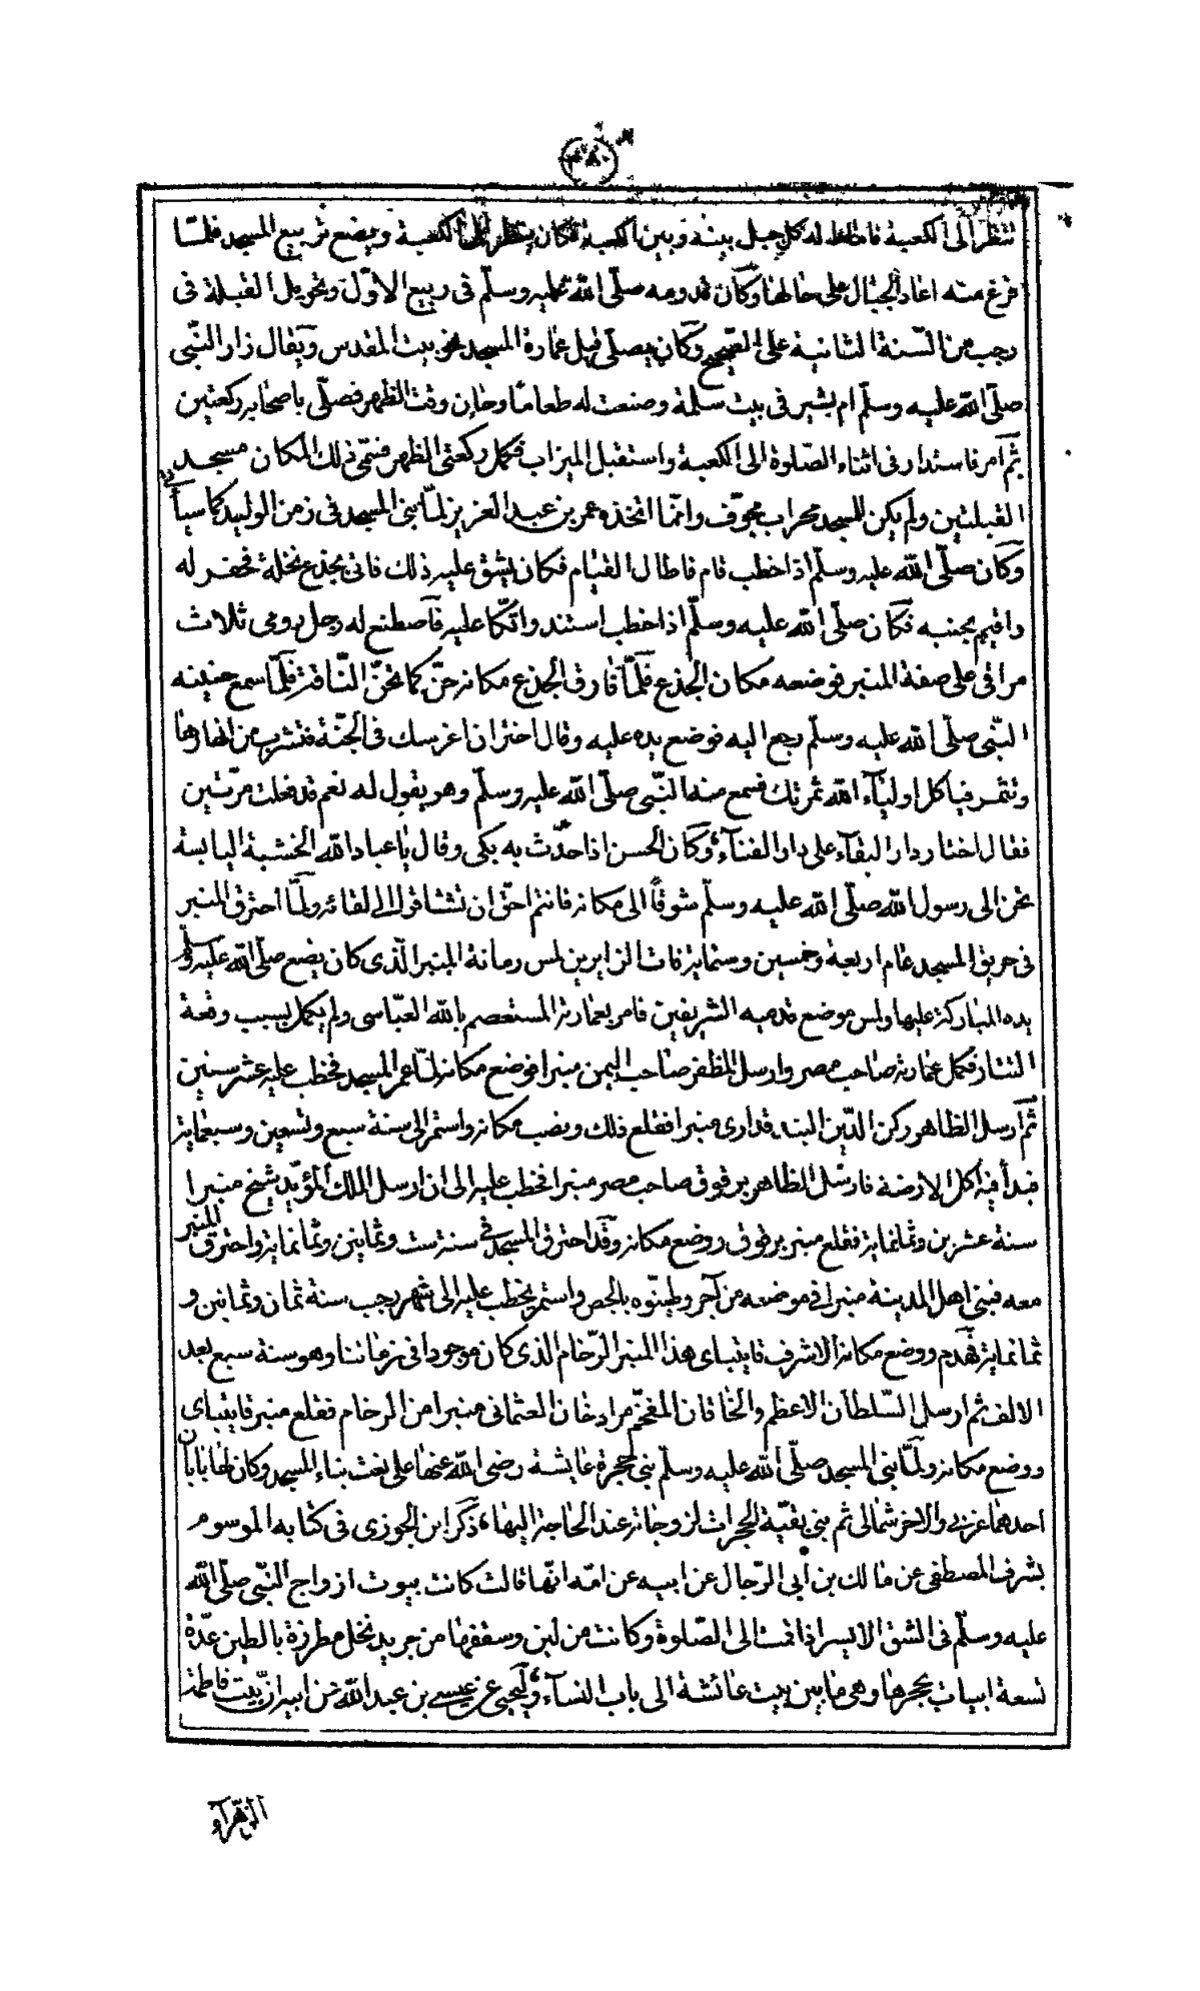 ٣٨٠
تنظر الى الكعبة فاماط له كل جبل بينه وبين الكعبة فكان ينظر الى الكعبة ويضع تربيع المسجد فلمّا
فرغ منه اعاد الجبال على حالها وكان قدومه صلّى الله عليه وسلّم فى ربيع الاوّل وتحويل القبلة فى
رجب من السّنة الثانية على الصّحيح وكان يصلّى قبل عمارة المسجد نحو بيت المقدس ويقال زار النّبى
صلّى الله عليه وسلّم ام بشير فى بيت سلمة وصنعت له طعاما وحان وقت الظهر فصلّى باصحابه ركعتين
ثمّ امر فاستدار فى اثناء الصّلوة الى الكعبة واستقبل الميزاب فكمل ركعتى الظهر فسمّى ذلك المكان مسجد
القبلتين ولم يكن للمسجد محراب مجوّف وانّما اتخذه عمر بن عبد العزيز لمّا بنى المسجد فى زمن الوليد كما سيأتى
وكان صلّى الله عليه وسلّم اذا خطب قام فاطال القيام فكان يشق عليه ذلك فاتى بجذع نخلة فحفر له
واقيم بجنبه فكان صلّى الله عليه وسلّم اذا خطب استند واتكّا عليه فاصطنع له رجل رومى ثلاث
مراقى على صفة المنبر فوضعه مكان الجذع فلمّا فارق الجذع مكانه حنّ كما تحنّ النّاقة فلمّا سمع حنينه
النّبى صلّى الله عليه وسلّم رجع اليه فوضع يده عليه وقال اختر ان اغرسك فى الجنّة فتشرب من انهارها
وتثمر فيأكل اوليآء الله ثمرتك فسمع منه النّبى صلّى الله عليه وسلّم وهو يقول له نعم قد فعلت مرّتين
فقال اختار دار البقآء على دار الفنآء، وكان الحسن اذا حدّث به بكى وقال يا عباد الله الخشبة اليابسة
تحن الى رسول الله صلّى الله عليه وسلّم شوقًا الى مكانه فانتم احقّ ان تشتاقوا الى لقائه ولمّا احترق المنبر
فى حريق المسجد عام اربعة وخمسين وستمايه فات الزايرين لمس رمانة المنبر الّذى كان يضع صلّى الله عليه وسلّم
يده المباركة عليها ولمس موضع قدميه الشريفين فامر بعمارته المستعصم بالله العبّاسى ولم يكمل بسبب وقعة
التتار فكمل عمارته صاحب مصر وارسل المظفر صاحب اليمن منبرا فوضع مكانه لمّا عمر المسجد فخطب عليه عشر سنين
ثمّ ارسل الظاهر ركن الدّين البندقدارى منبرا فقلع ذلك ونصب مكانه واستمر الى سنة سبع وتسعين وسبعمايه
فبدأ فيه أكل الارضة فارسل الظاهر برقوق صاحب مصر منبرا فخطب عليه الى ان ارسل الملك المؤيّد شيخ منبرا
سنة عشرين وثمانمايه فقلع منبر برقوق ووضع مكانه وقد احترق المسجد فى سنة ست وثمانين وثمانمايه واحترق المنبر
معه فبنى اهل المدينة منبرا فى موضعه من آجر وطيّنوه بالجص واستمر يخطب عليه الى شهر رجب سنة ثمان وثمانين و
ثمانمايه فهدم ووضع مكانه الاشرف قايتباى هذا المنبر الرّخام الذى كان موجودا فى زماننا وهو سنة سبع بعد
الالف ثم ارسل السّلطان الاعظم والخاقان المفخّم مراد خان العثمانى منبرا من الرخام فقلع منبر قايتباى
ووضع مكانه ولمّا بنى المسجد صلّى الله عليه وسلّم بنى حجرة عايشة رضى الله عنها على نعت بناء المسجد وكان لها بابان
احدهما غربى والاخر شمالى ثم بنى بقيّة الحجرات لزوجاته عند الحاجة اليها، ذكر ابن الجوزى فى كتابه الموسوم
بشرف المصطفى عن مالك بن أبى الرّجال عن ابيه عن امّه انّها قالت كانت بيوت ازواج النّبى صلّى الله
عليه وسلّم فى الشق الايسر اذا قمت الى الصّلوة وكانت من لبن وسقفها من جريد نخل مطرزة بالطين عدّة
تسعة ابيات بحجرها وهى ما بين بيت عائشة الى باب النسآء، وليحيى عن عيسى بن عبد الله عن ابيه ان بيت فاطمة
الزهرآء